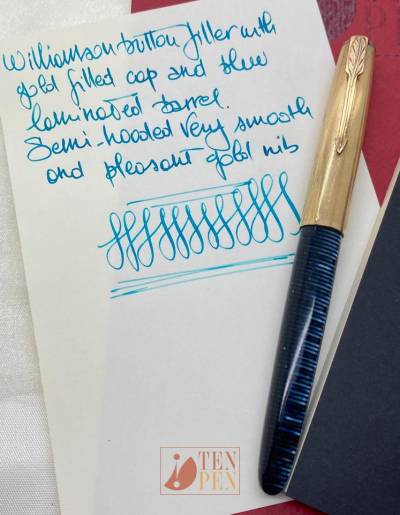 Williamson button filler with
gold filled cap and blue
laminated barrel.
Semi-hooded Very smooth
and pleasant gold nib
TEN
PEN